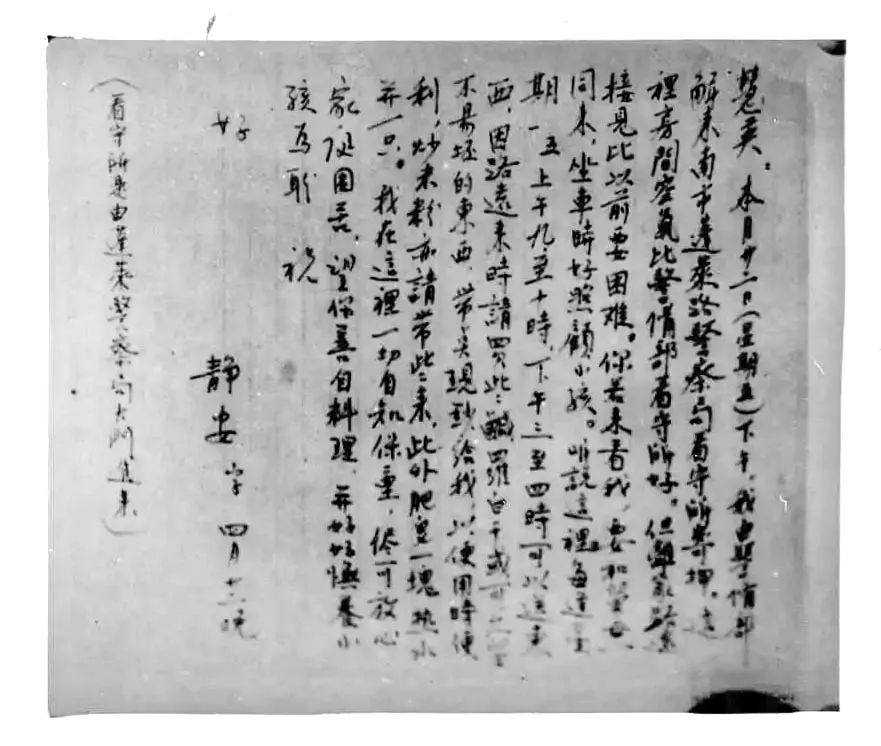 慧英：本月廿二日（星期五）下午，我由警備部
解來南市蓬萊路警察局看守所寄押。這
裡房間空氣比警備部看守所好。但離家路遠
接見比以前要困難。你若來看我，要和
同來，坐車時好照顧小孩。听說這裡每逢星
期一、五上午九至十時，下午三至四時可以送東
西，因路遠來時請買些鹹羅白干或
不易壞的東西，帶些現鈔給我，以便用時便
利，炒米粉亦請帶些來，此外肥皂一塊熱水
并一只。我在這裡一切自知保重，儘可放心
家庭困苦，望你善自料理，并好好撫養小
孩為盼 祝
好
静安 字 四月 晚
（看守所是由蓬萊警察局大門進來）